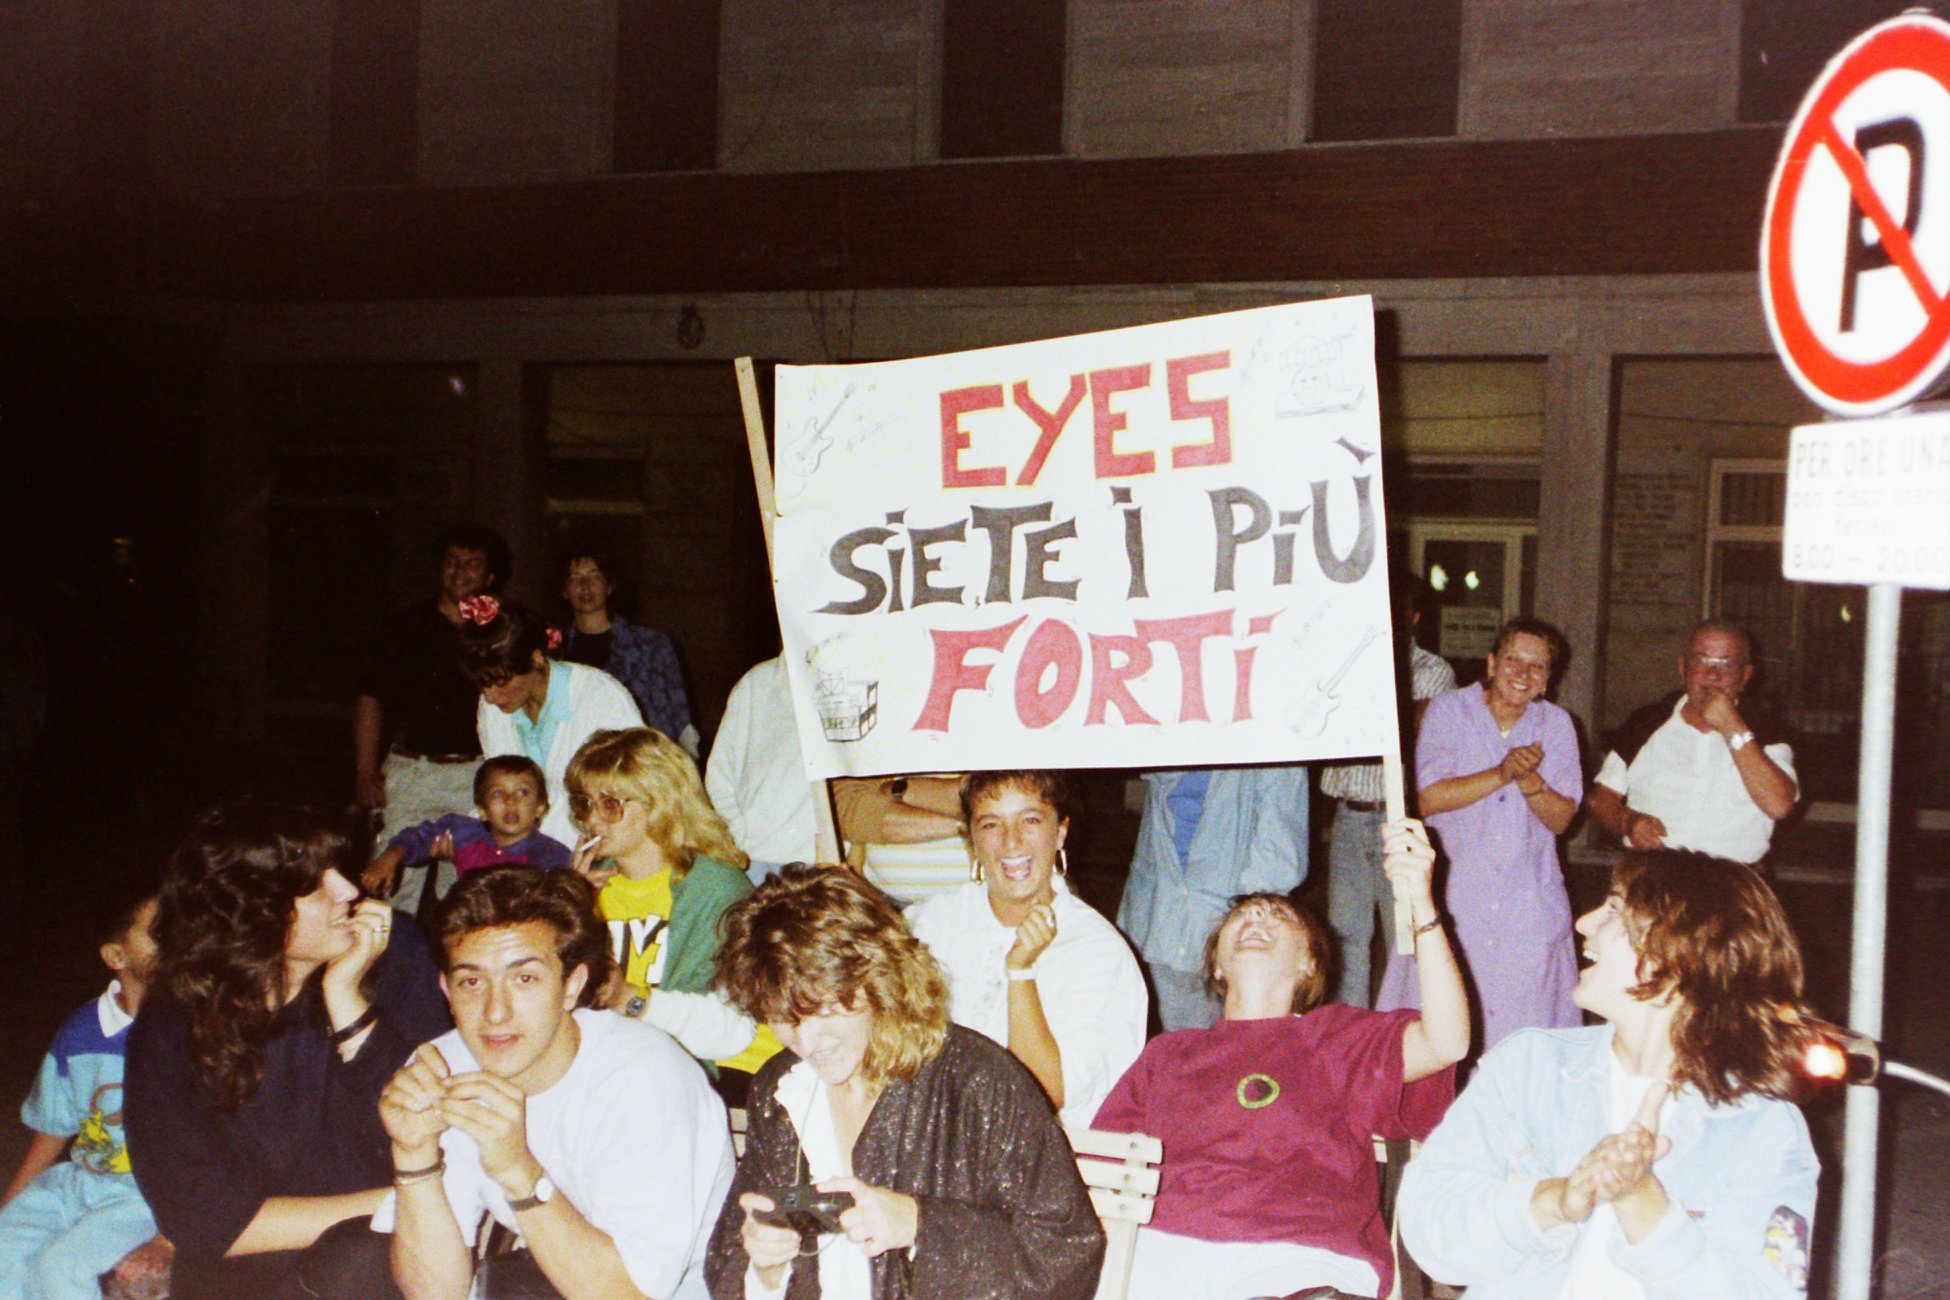 EYES
SIETE I PIÙ
FORTI
P
PER ORE UNA
con disco orario
feriali
8.00 - 20.00